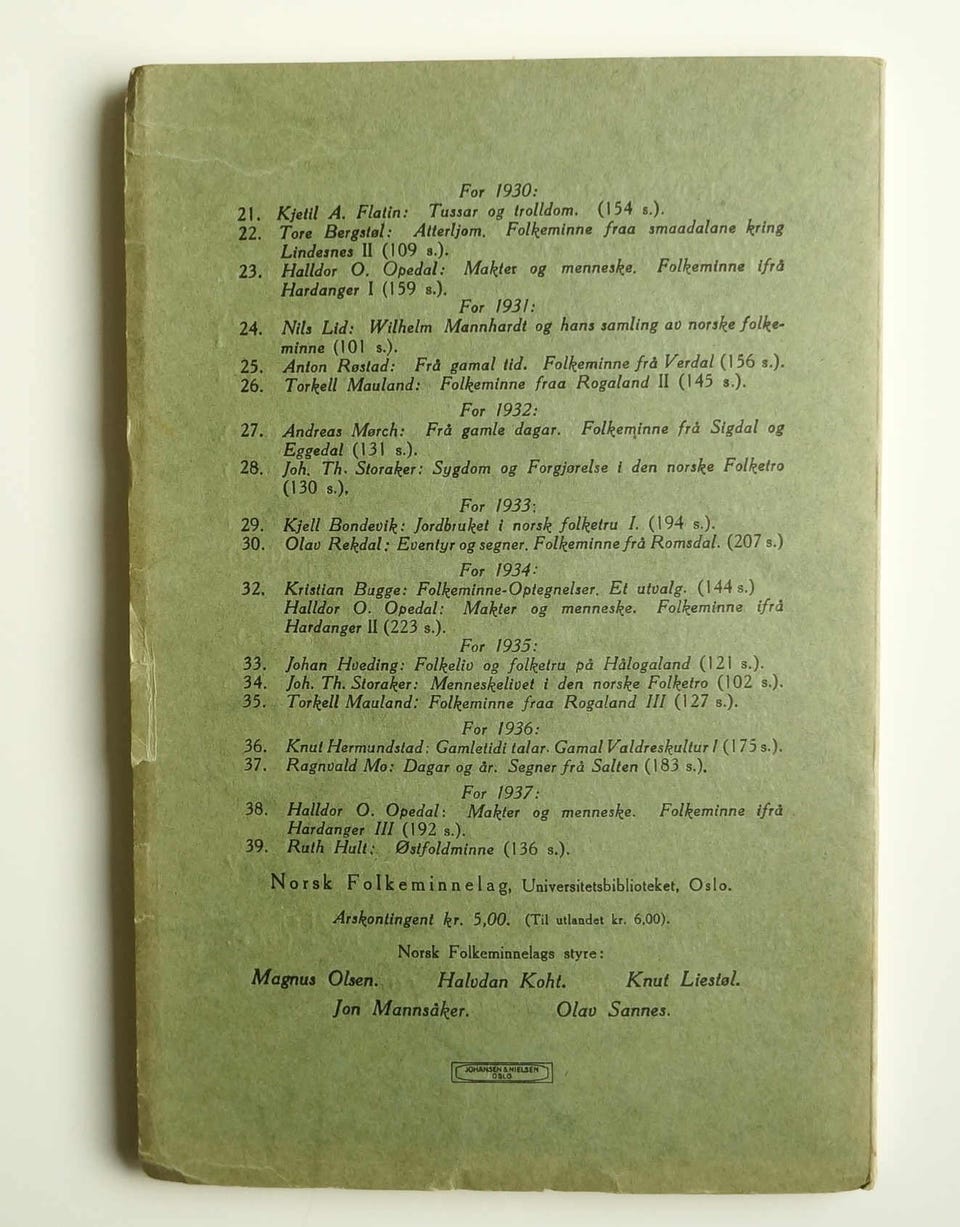 For 1930:
21. Kjetil A. Flatin: Tussar og trolldom. (154 s.).
22. Tore Bergstøl: Atterljom. Folkeminne fraa smaadalane kring
Lindesnes II (109 s.).
23. Halldor O. Opedal: Makter og menneske. Folkeminne ifrå
Hardanger I (159 s.).
For 1931:
24. Nils Lid: Wilhelm Mannhardt og hans samling av norske folke-
minne (101 s.).
25. Anton Røstad: Frå gamal tid. Folkeminne frå Verdal (156 s.).
26. Torkell Mauland: Folkeminne fraa Rogaland II (145 s.).
For 1932:
27. Andreas Mørch: Frå gamle dagar. Folkeminne frå Sigdal og
Eggedal (131 s.).
28. Joh. Th. Storaker: Sygdom og Forgjørelse i den norske Folketro
(130 s.).
For 1933:
29. Kjell Bondevik: Jordbruket i norsk folketru I. (194 s.).
30. Olav Rekdal: Eventyr og segner. Folkeminne frå Romsdal. (207 s.)
For 1934:
32. Kristian Bugge: Folkeminne-Optegnelser. Et utvalg. (144 s.)
Halldor O. Opedal: Makter og menneske. Folkeminne ifrå
Hardanger II (223 s.).
For 1935:
33. Johan Hveding: Folkeliv og folketru på Hålogaland (121 s.).
34. Joh. Th. Storaker: Menneskelivet i den norske Folketro (102 s.).
35. Torkell Mauland: Folkeminne fraa Rogaland III (127 s.).
For 1936:
36. Knut Hermundstad: Gamletidi talar. Gamal Valdreskultur I (175 s.).
37. Ragnvald Mo: Dagar og år. Segner frå Salten (183 s.).
For 1937:
38. Halldor O. Opedal: Makter og menneske. Folkeminne ifrå
Hardanger III (192 s.).
39. Ruth Hult: Østfoldminne (136 s.).
Norsk Folkeminnelag, Universitetsbiblioteket, Oslo.
Arskontingent kr. 5,00. (Til utlandet kr. 6,00).
Norsk Folkeminnelags styre:
Magnus Olsen. Halvdan Koht. Knut Liestøl.
Jon Mannsåker. Olav Sannes.
JOHANSEN & NIELSEN
OSLO